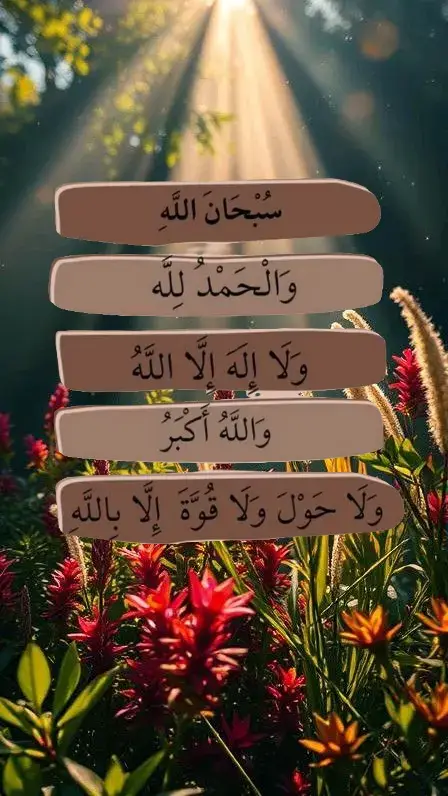 سُبْحَانَ اللَّهِ
وَالْحَمْدُ لِلَّه
وَلَا إِلَهَ إِلَّا اللَّهُ
وَاللَّهُ أَكْبَرُ
وَلَا حَوْلَ وَلَا قُوَّةَ إِلَّا بِاللَّهِ